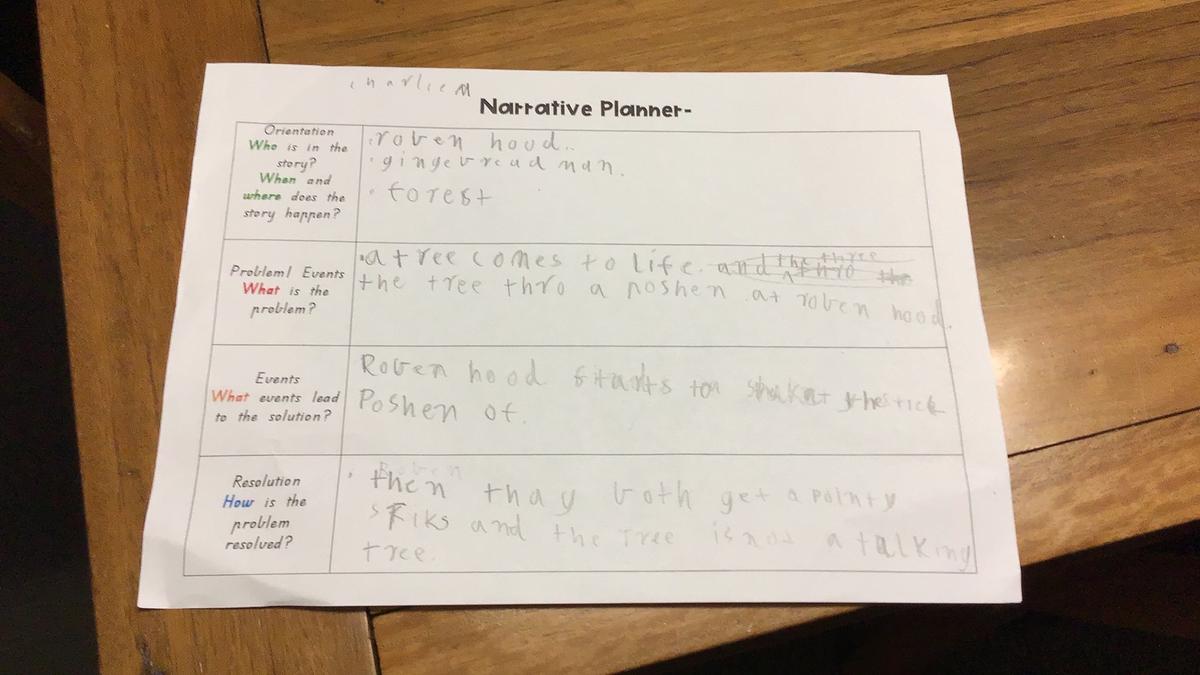 charlie M
Narrative Planner-
Orientation
Who is in the
story?
When and
where does the
story happen?
roben hood..
gingebread man.
forest
Problem/ Events
What is the
problem?
a tree comes to life. and the three
thro the
the tree thro a poshen at roben hood.
Events
What events lead
to the solution?
Roben hood starts to thestick
Poshen of.
Resolution
How is the
problem
resolved?
Roben
then thay both get a pointy
stiks and the Tree is not a talking
tree.